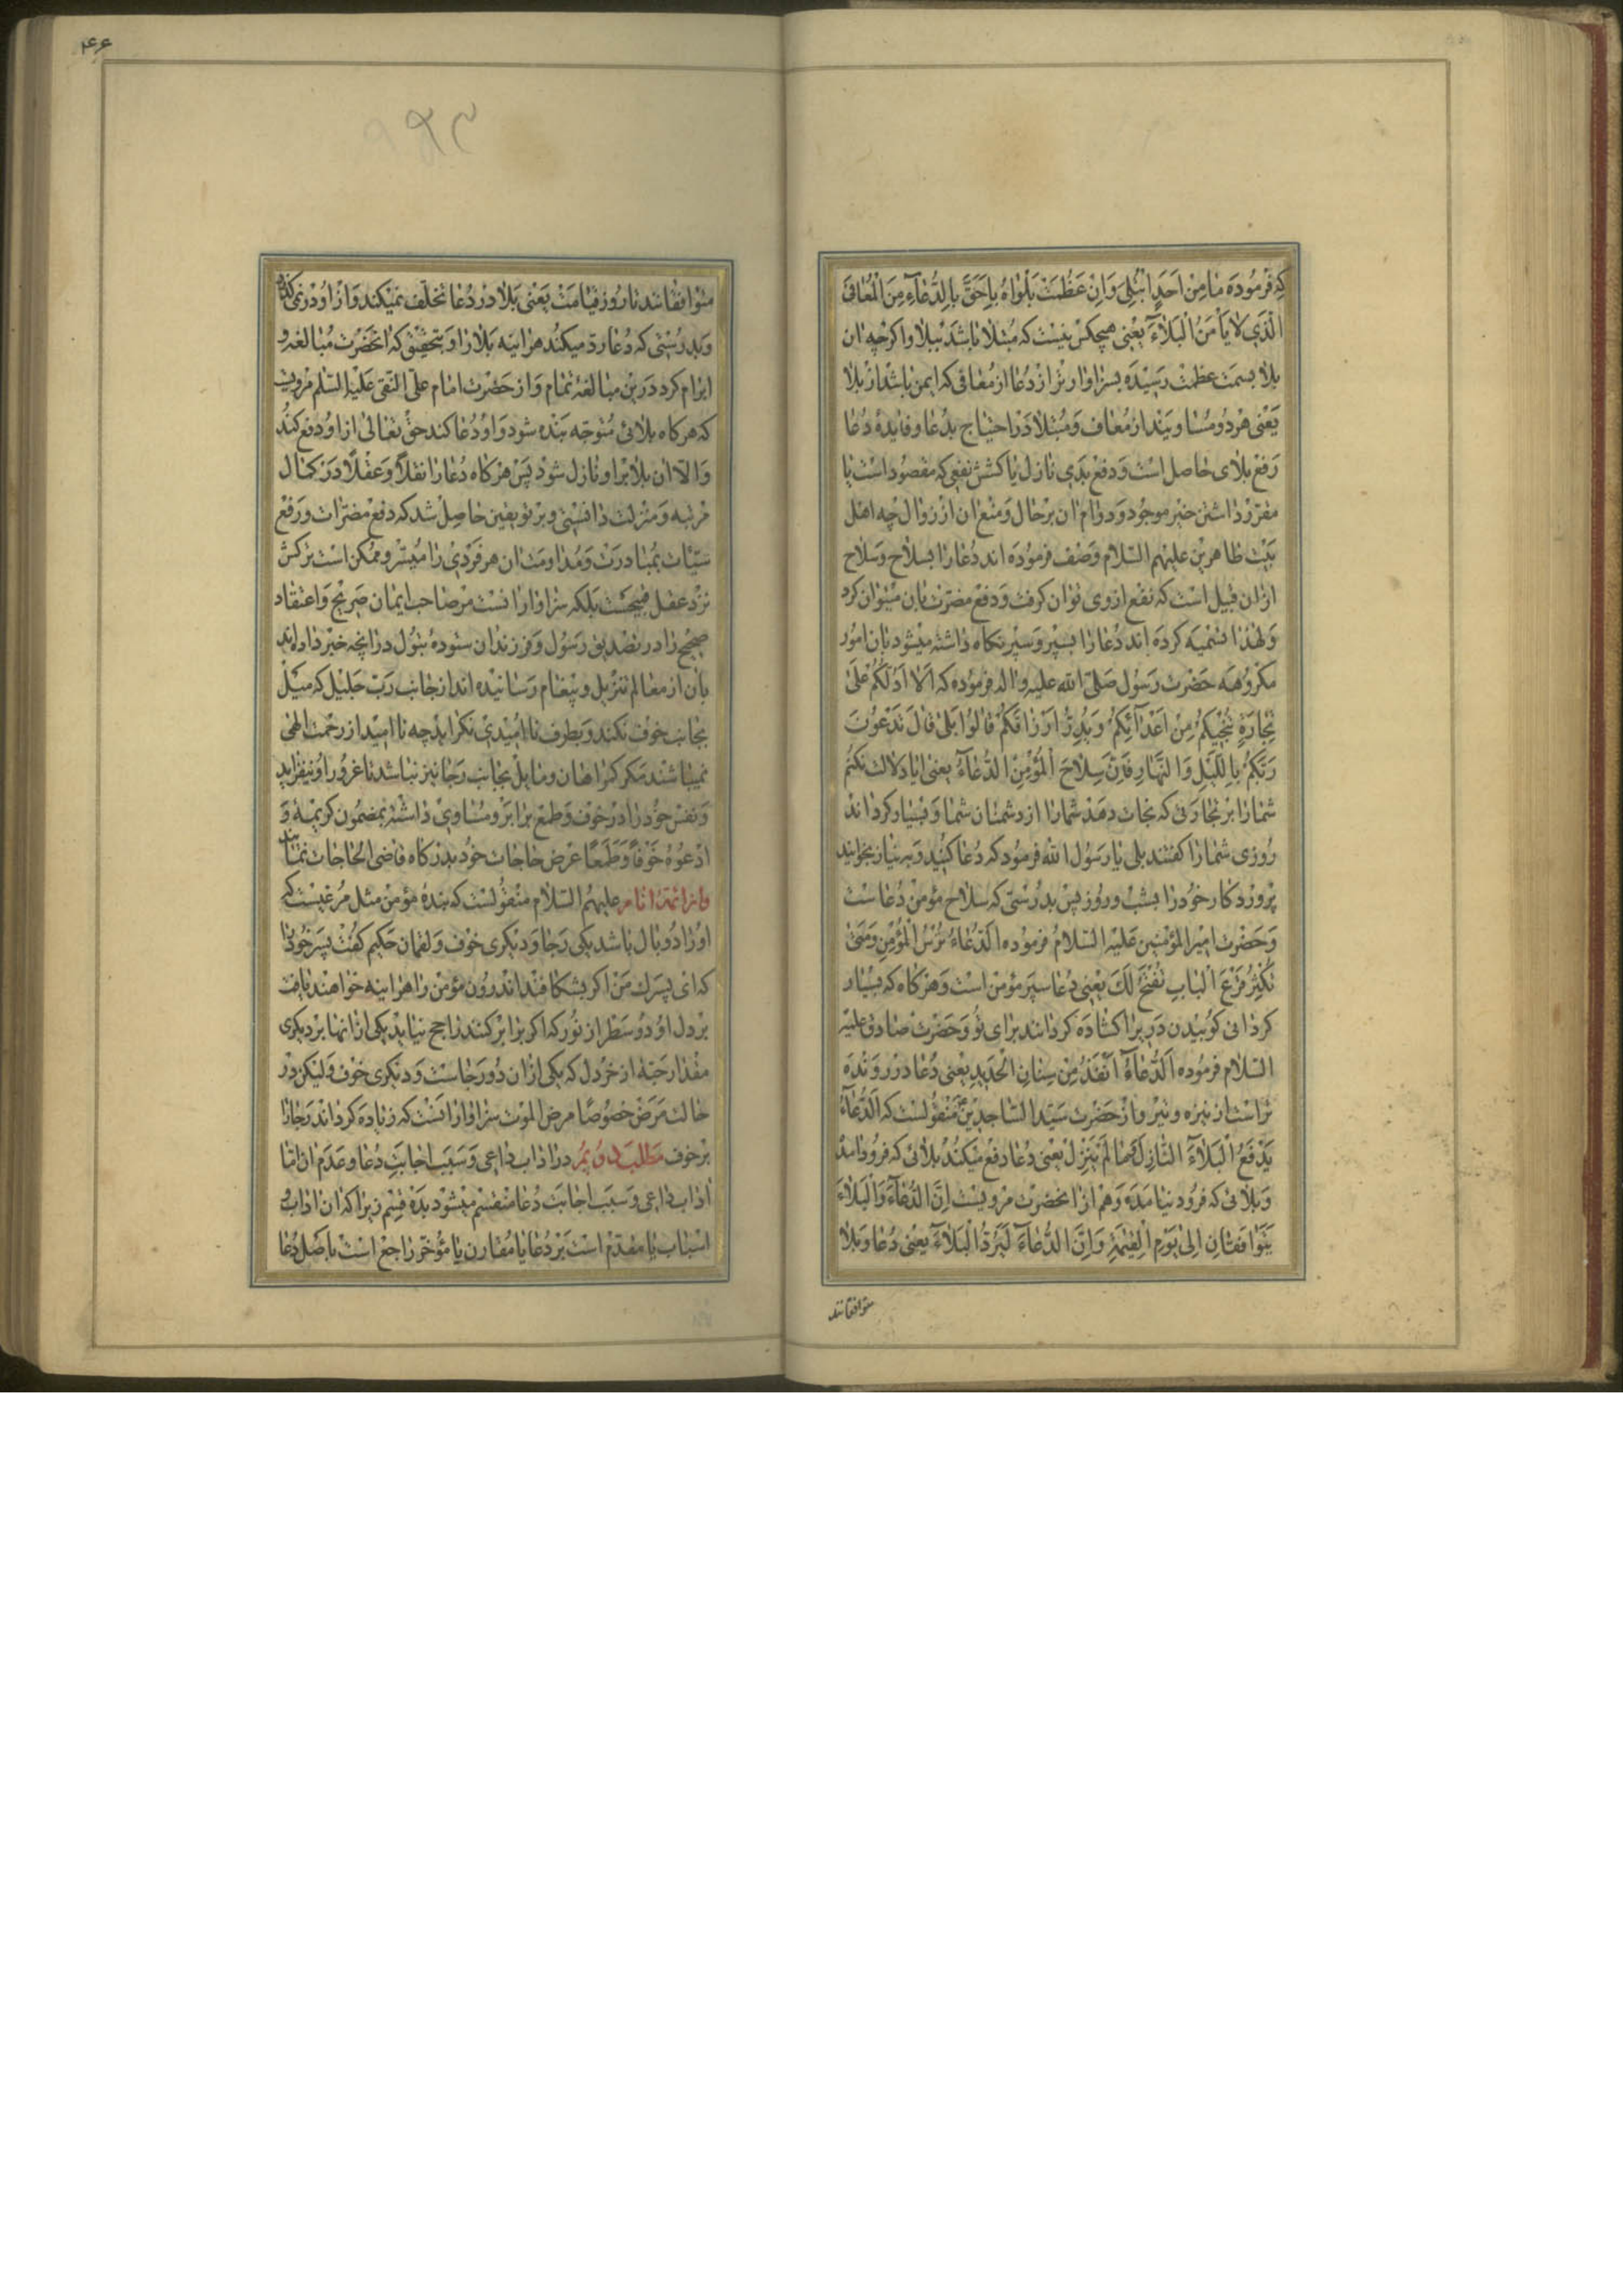 که فرموده ما مِنْ اَحَدٍ ابْتُلِیَ وَاِنْ عَظُمَتْ بَلْواهُ بِاَحَقَّ بِالدُّعآءِ مِنَ الْمُعافَی
الَّذی لا یَأْمَنُ الْبَلآءَ یعنی هیچکس نیست که مبتلا باشد ببلا و اکرچه ان
بلا بسمت عظمت رسیده بسزاوارتر از دعا از معافی که ایمن باشد از بلا
یعنی هردو مساویند از معاف و مبتلا در احتیاج بدعا و فایدهٔ دعا
رفع بلای حاصل است و دفع بدی نازل یا کشش نفعی که مقصود است یا
مقرر داشتن خیر موجود و دوام ان برحال و منع ان از زوال چه اهل
بیت طاهرین علیهم السلام وصف فرموده اند دعا را بسلاح و سلاح
ازان قبیل است که نفع ازوی توان کرفت و دفع مضرت بان میتوان کرد
و لهذا تسمیه کرده اند دعا را بسپر و سپر نکاه داشته میشود بان امور
مکروهه حضرت رسول صلی الله علیه واله فرموده که اَلا اَدُلُّکُمْ عَلی
تِجارَةٍ تُنْجیکُمْ مِنْ اَعْدآئِکُمْ وَیُدِرُّ اَرْزاقَکُمْ قالُوا بَلی قالَ تَدْعُونَ
رَبَّکُمْ بِاللَّیْلِ وَالنَّهارِ فَاِنَّ سِلاحَ الْمُؤْمِنِ الدُّعآءُ یعنی ایا دلالت نکنم
شما را بر تجارتی که نجات دهد شما را از دشمنان شما و بسیار کرداند
روزی شما را کفتند بلی یا رسول الله فرمود که دعا کنید و به نیاز بخوانید
پروردکار خود را بشب و روز پس بدرستی که سلاح مؤمن دعاست
و حضرت امیر المؤمنین علیه السلام فرموده اَلدُّعآءُ تُرْسُ الْمُؤْمِنِ وَمَتی
تُکْثِرْ قَرْعَ الْبابِ یُفْتَحْ لَکَ یعنی دعا سپر مؤمن است و هرکاه که بسیار
کردانی کوبیدن در را کشاده کردانند برای تو و حضرت صادق علیه
السلام فرموده اَلدُّعآءُ اَنْفَذُ مِنْ سِنانِ الْحَدیدِ یعنی دعا در رونده
تراست از نیزه و تیر و از حضرت سید الساجدین منقولست که اَلدُّعآءُ
یَدْفَعُ الْبَلآءَ النّازِلَ وَما لَمْ یَنْزِلْ یعنی دعا دفع میکند بلائی که فرود امده
و بلائی که فرود نیامده و هم از انحضرت مرویست اِنَّ الدُّعآءَ وَالْبَلآءَ
یَتَوافَقانِ اِلی یَوْمِ الْقِیمَةِ وَاِنَّ الدُّعآءَ لَیَرُدُّ الْبَلآءَ یعنی دعا و بلا
متوافقانند
۴۶
متوافقانند تا روز قیامت یعنی بلا در دعا تخلف نمیکند و از او در نمیکذرد
و بدرستی که دعا رد میکند هراینه بلا را و بتحقیق که انحضرت مبالغه و
ابرام کرد درین مبالغهٔ تمام و از حضرت امام علی النقی علیه السلم مرویست
که هرکاه بلائی متوجه بنده شود و او دعا کند حق تعالی از او دفع کند
و الا ان بلا بر او نازل شود پس هرکاه دعا را نقلاً و عقلاً درین کمال
مرتبه و منزلت دانستی و بر تو یقین حاصل شد که دفع مضرات و رفع
سیئات بمبادرت و مداومت ان هر فردی را میسر و ممکن است ترکش
نزد عقل قبیحست بلکه سزاوار انست مر صاحب ایمان صریح و اعتقاد
صحیح را در تصدیق رسول و فرزندان ستودهٔ بتول درانچه خبر داده اند
بان از معالم تنزیل و پیغام رسانیده اند از جانب رب جلیل که میل
بجانب خوف نکند و بطرف ناامیدی نکراید چه ناامید از رحمت الهی
نمیباشند مکر کمراهان و مایل بجانب رجا نیز نباشد تا غرور او نیفزاید
و نفس خود را در خوف و طمع برابر و مساوی داشته بمضمون کریمهٔ وَ
ادْعُوهُ خَوْفاً وَطَمَعاً عرض حاجات خود بدرکاه قاضی الحاجات نماید
و از ائمهٔ انام علیهم السلام منقولست که بندهٔ مؤمن مثل مرغیست که
او را دو بال باشد یکی رجا و دیکری خوف و لقمان حکیم کفت پسر خود را
که ای پسرک من اکر بشکافند اندرون مؤمن را هراینه خواهند یافت
بر دل او دو سطر از نور که اکر برابر کنند راجح نیاید یکی ازانها بر دیکری
مقدار حبهٔ از خردل که یکی ازان دو رجاست و دیکری خوف و لیکن در
حالت مرض خصوصا مرض الموت سزاوار انست که زیاده کرداند رجا را
بر خوف مطلب دویم در اداب داعی و سبب اجابت دعا و عدم ان اما
اداب داعی و سبب اجابت دعا منقسم میشود بده قسم زیرا که ان اداب و
اسباب یا مقدم است بر دعا یا مقارن یا مؤخر راجع است باصل دعا